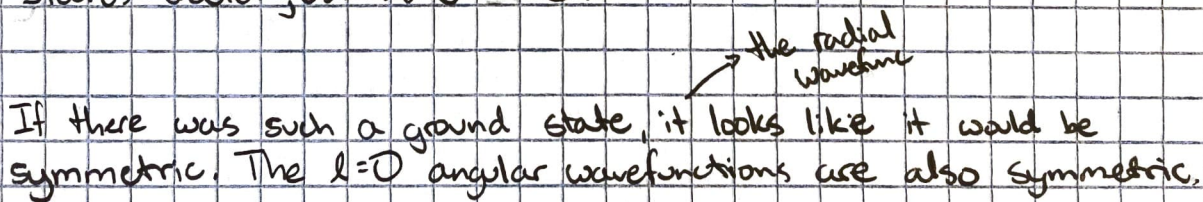 the radial
wavefunc
If there was such a ground state, it looks like it would be
symmetric. The l=0 angular wavefunctions are also symmetric.